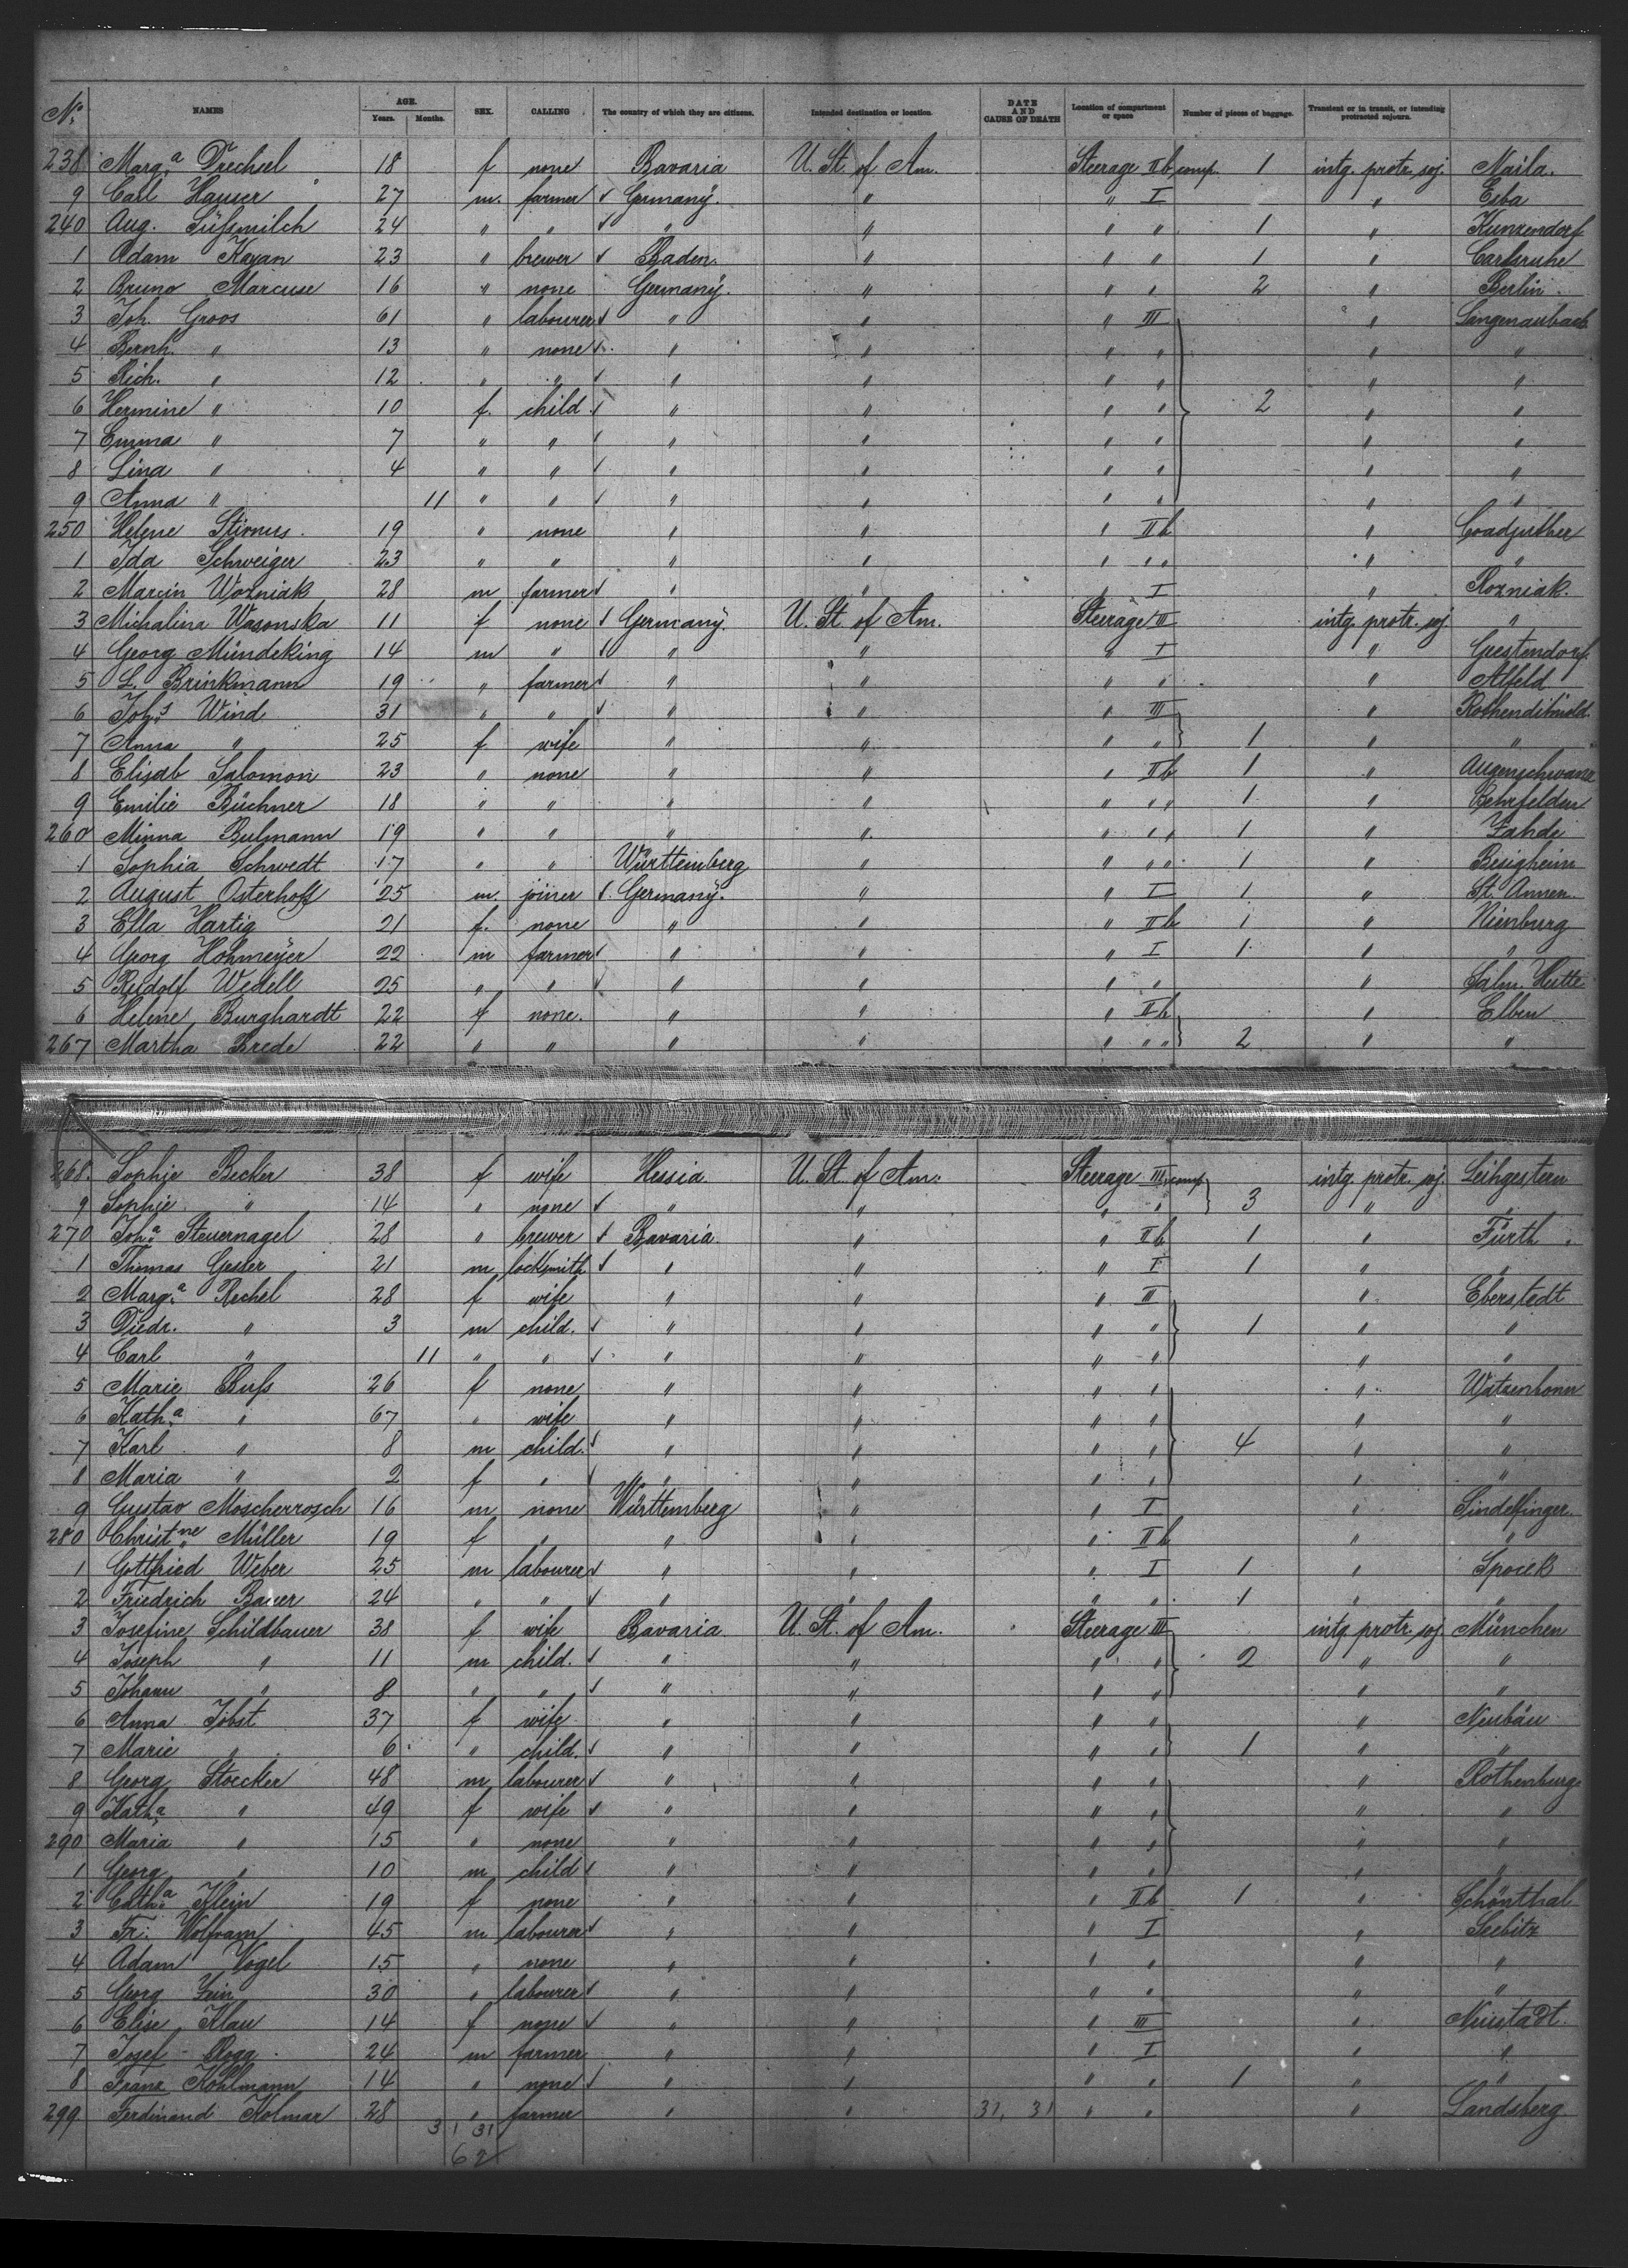 No. NAMES AGE. Years. Months. SEX. CALLING The country of which they are citizens. Intended destination or location. DATE AND CAUSE OF DEATH Location of compartment or space Number of pieces of baggage. Transient or in transit, or intending protracted sojourn.
238 Marg.a Drechsel 18 f none Bavaria U. St. of Am. Steerage IIb comp. 1 intg. protr. soj. Naila.
9 Carl Hauser 27 m. farmer √ Germany. " " I " Esba
240 Aug. Süßsmilch 24 " " √ " " " " 1 " Kunzendorf
1 Adam Kayan 23 " brewer √ Baden. " " " 1 " Carlsruhe
2 Bruno Marcuse 16 " none Germany. " " " 2 " Berlin
3 Joh. Groos 61 " labourer √ " " " III " Langenaubach
4 Bernh. " 13 " none √ " " " " " "
5 Rich. " 12 " " √ " " " " " "
6 Hermine " 10 f. child √ " " " " 2 " "
7 Emma " 7 " " √ " " " " " "
8 Lina " 4 " " √ " " " " " "
9 Anna " 11 " " √ " " " " " "
250 Helene Stirnus 19 " none " " " IIb " Coadjuther
1 Ida Schweiger 23 " " " " " " " " "
2 Marcin Wozniak 28 m farmer √ " " " I " Rozniak.
3 Michalina Wasonska 11 f none √ Germany. U. St. of Am. Steerage III intg. protr. soj. "
4 Georg Mündeking 14 m " √ " " " I " Geestendorf
5 L. Brinkmann 19 " farmer √ " " " " " Alfeld
6 Joh.s Wind 31 " " √ " " " III " Rothenditmold
7 Anna " 25 f wife " " " " 1 " "
8 Elisab Salomon 23 " none " " " IIb 1 " Augenschwane
9 Emilie Büchner 18 " " " " " " " 1 " Behrfelden
260 Minna Bulmann 19 " " " " " " " 1 " Fahde
1 Sophia Schwedt 17 " " Württemberg " " " " 1 " Besigheim
2 August Osterhoff 25 m. joiner √ Germany. " " I 1 " St. Annen.
3 Ella Hartig 21 f. none " " " IIb 1 " Nienburg
4 Georg Hohmeÿer 22 m farmer √ " " " I 1 " "
5 Rudolf Wedell 25 " " √ " " " " " Salm. Hütte
6 Helene Burghardt 22 f none. " " " IIb " Elben
267 Martha Brede 22 " " " " " " " 2 " "
268. Sophie Becker 38 f wife Hessia U. St. of Am. Steerage III comp. intg. protr. soj. Leihgestern
9 Sophie " 14 " none √ " " " " 3 " "
270 Joh.a Steuernagel 28 " brewer √ Bavaria. " " IIb 1 " Fürth
1 Thomas Gesler 21 m locksmith √ " " " I 1 " "
2 Marg.a Rechel 28 f wife " " " III " Eberstedt
3 Diedr. " 3 m child. √ " " " " 1 " "
4 Carl " 11 " " √ " " " " " "
5 Marie Buſs 26 f none " " " " " Watzenborn
6 Kath.a " 67 " wife " " " " " "
7 Karl " 8 m child. √ " " " " 4 " "
8 Maria " 2 f " √ " " " " " "
9 Gustav Moscherrosch 16 m none Württemberg " " I " Sindelfinger.
280 Christ.ne Müller 19 f " " " " IIb " "
1 Gottfried Weber 25 m labourer √ " " " I 1 " Spoeck
2 Friedrich Bauer 24 " " √ " " " " 1 " "
3 Josefine Schildbauer 38 f wife Bavaria U. St. of Am. Steerage III intg. protr. soj. München
4 Joseph " 11 m child. √ " " " " 2 " "
5 Johann " 8 " " √ " " " " " "
6 Anna Jobst 37 f wife " " " " " Neubäu
7 Marie " 6 " child. √ " " " " 1 " "
8 Georg Stoecker 48 m labourer √ " " " " " Rothenburg
9 Kath.a " 49 f wife √ " " " " " "
290 Maria " 15 " none " " " " " "
1 Georg " 10 m child √ " " " " " "
2 Cath.a Klein 19 f none " " " IIb 1 " Schönthal
3 Fr. Wolfram 45 m labourer √ " " " I " Seebitz
4 Adam Vogel 15 " none " " " " " "
5 Georg Fein 30 " labourer √ " " " " " "
6 Elise Klau 14 f none √ " " " III " Neustadt.
7 Josef Rogg 24 m farmer " " " I " "
8 Franz Kohlmann 14 " none √ " " " " 1 " "
299 Ferdinand Kolmar 28 " farmer " " 31, 31 " " " Landsberg.
31 31
62